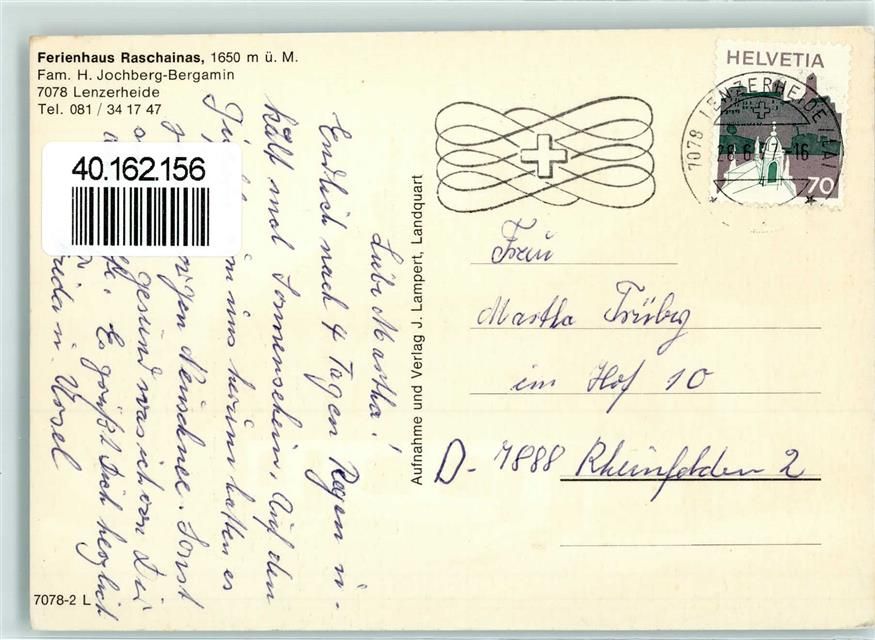 Ferienhaus Raschainas, 1650 m ü. M.
Fam. H. Jochberg-Bergamin
7078 Lenzerheide
Tel. 081 / 34 17 47
40.162.156
Liebe Martha!
Endlich nach 4 Tagen Regen u.
kält mal Sonnenschein. Auf den
um uns herum hatten es
Neuschnee. Sonst
gesund was ich von Dir
Es grüßt Dich herzlich
Frida u. Ursel
7078-2 L
Aufnahme und Verlag J. Lampert, Landquart
HELVETIA
70
7078 LENZERHEIDE/LAI
28.6.77-16
Frau
Martha Trübg
im Hof 10
D-7888 Rheinfelden 2